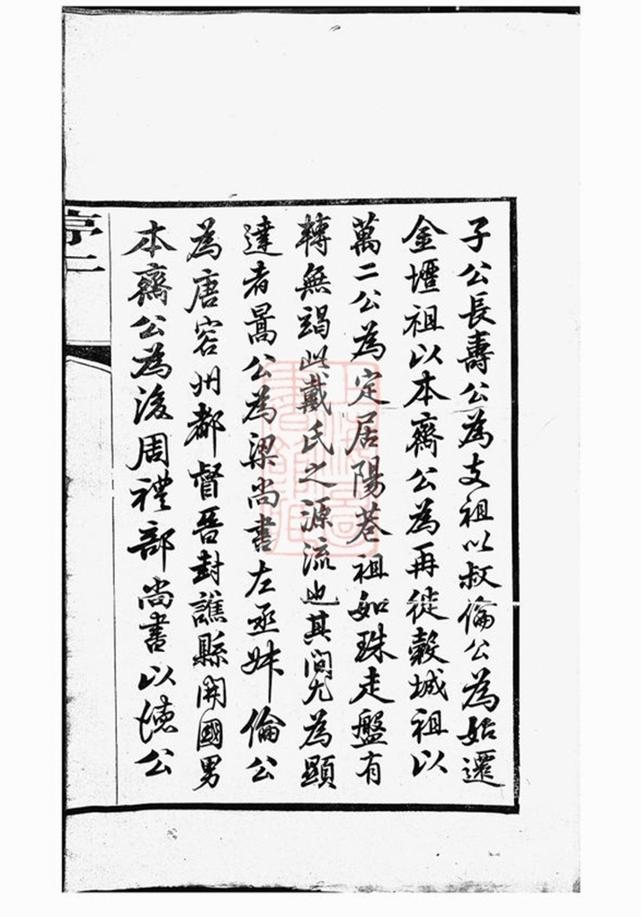 子公長壽公為支祖以叔倫公為始遷
金壇祖以本齋公為再徙穀城祖以
萬二公為定居陽巷祖如珠走盤有
轉無竭此戴氏之源流也其間尤為顯
達者暠公為梁尚書左丞姝倫公
為唐容州都督晉封譙縣開國男
本齋公為後周禮部尚書以德公
序二